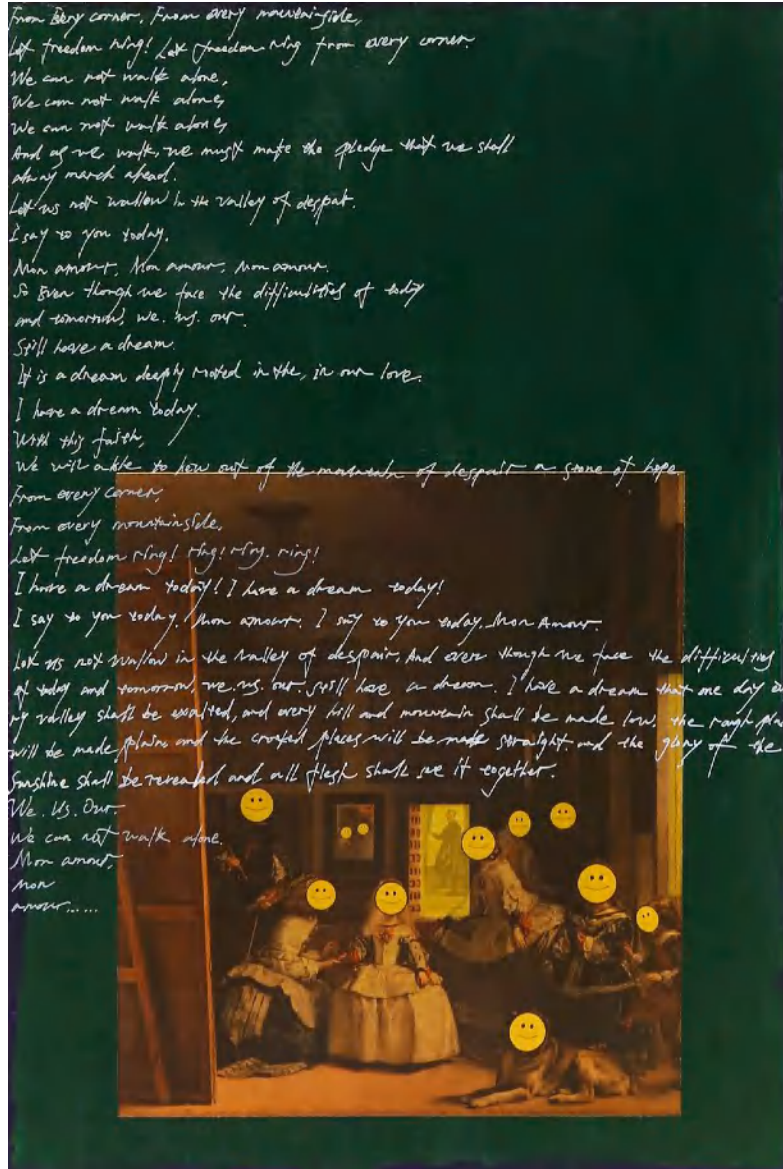 From Bery corner. From every mouneinside,
Let freedom ring! Let freedom ring from every corner.
We can not walk alone,
We can not walk alone,
We can not walk alone,
And as we walk, we must make the pledge that we shall
march ahead.
Let us not wallow in the valley of despat.
I say to you today.
Mon amour, Mon amour, Mon amour.
So Even though we face the difficulties of today
and tomorrow, we. us. our.
Still have a dream.
It is a dream deeply rooted in the, in our love.
I have a dream today.
With this faith,
We will able to hew out of the mountain of despair a stone of hope
From every corner,
From every mountainside,
Let freedom ring! ring! ring. ring!
I have a dream today! I have a dream today!
I say to you today. Mon amour. I say to you today. Mon Amour.
Let us not wallow in the valley of despair, And even though we face the difficulties
of today and tomorrow, we. us. our. still have a dream. I have a dream that one day
valley shall be exalted, and every hill and mountain shall be made low. the rough
will be made plains and the crooked places will be made straight and the glory of the
Sunshine shall be revealed and all flesh shall see it together.
We. Us. Our.
We can not walk alone.
Mon amour,
mon
amour......